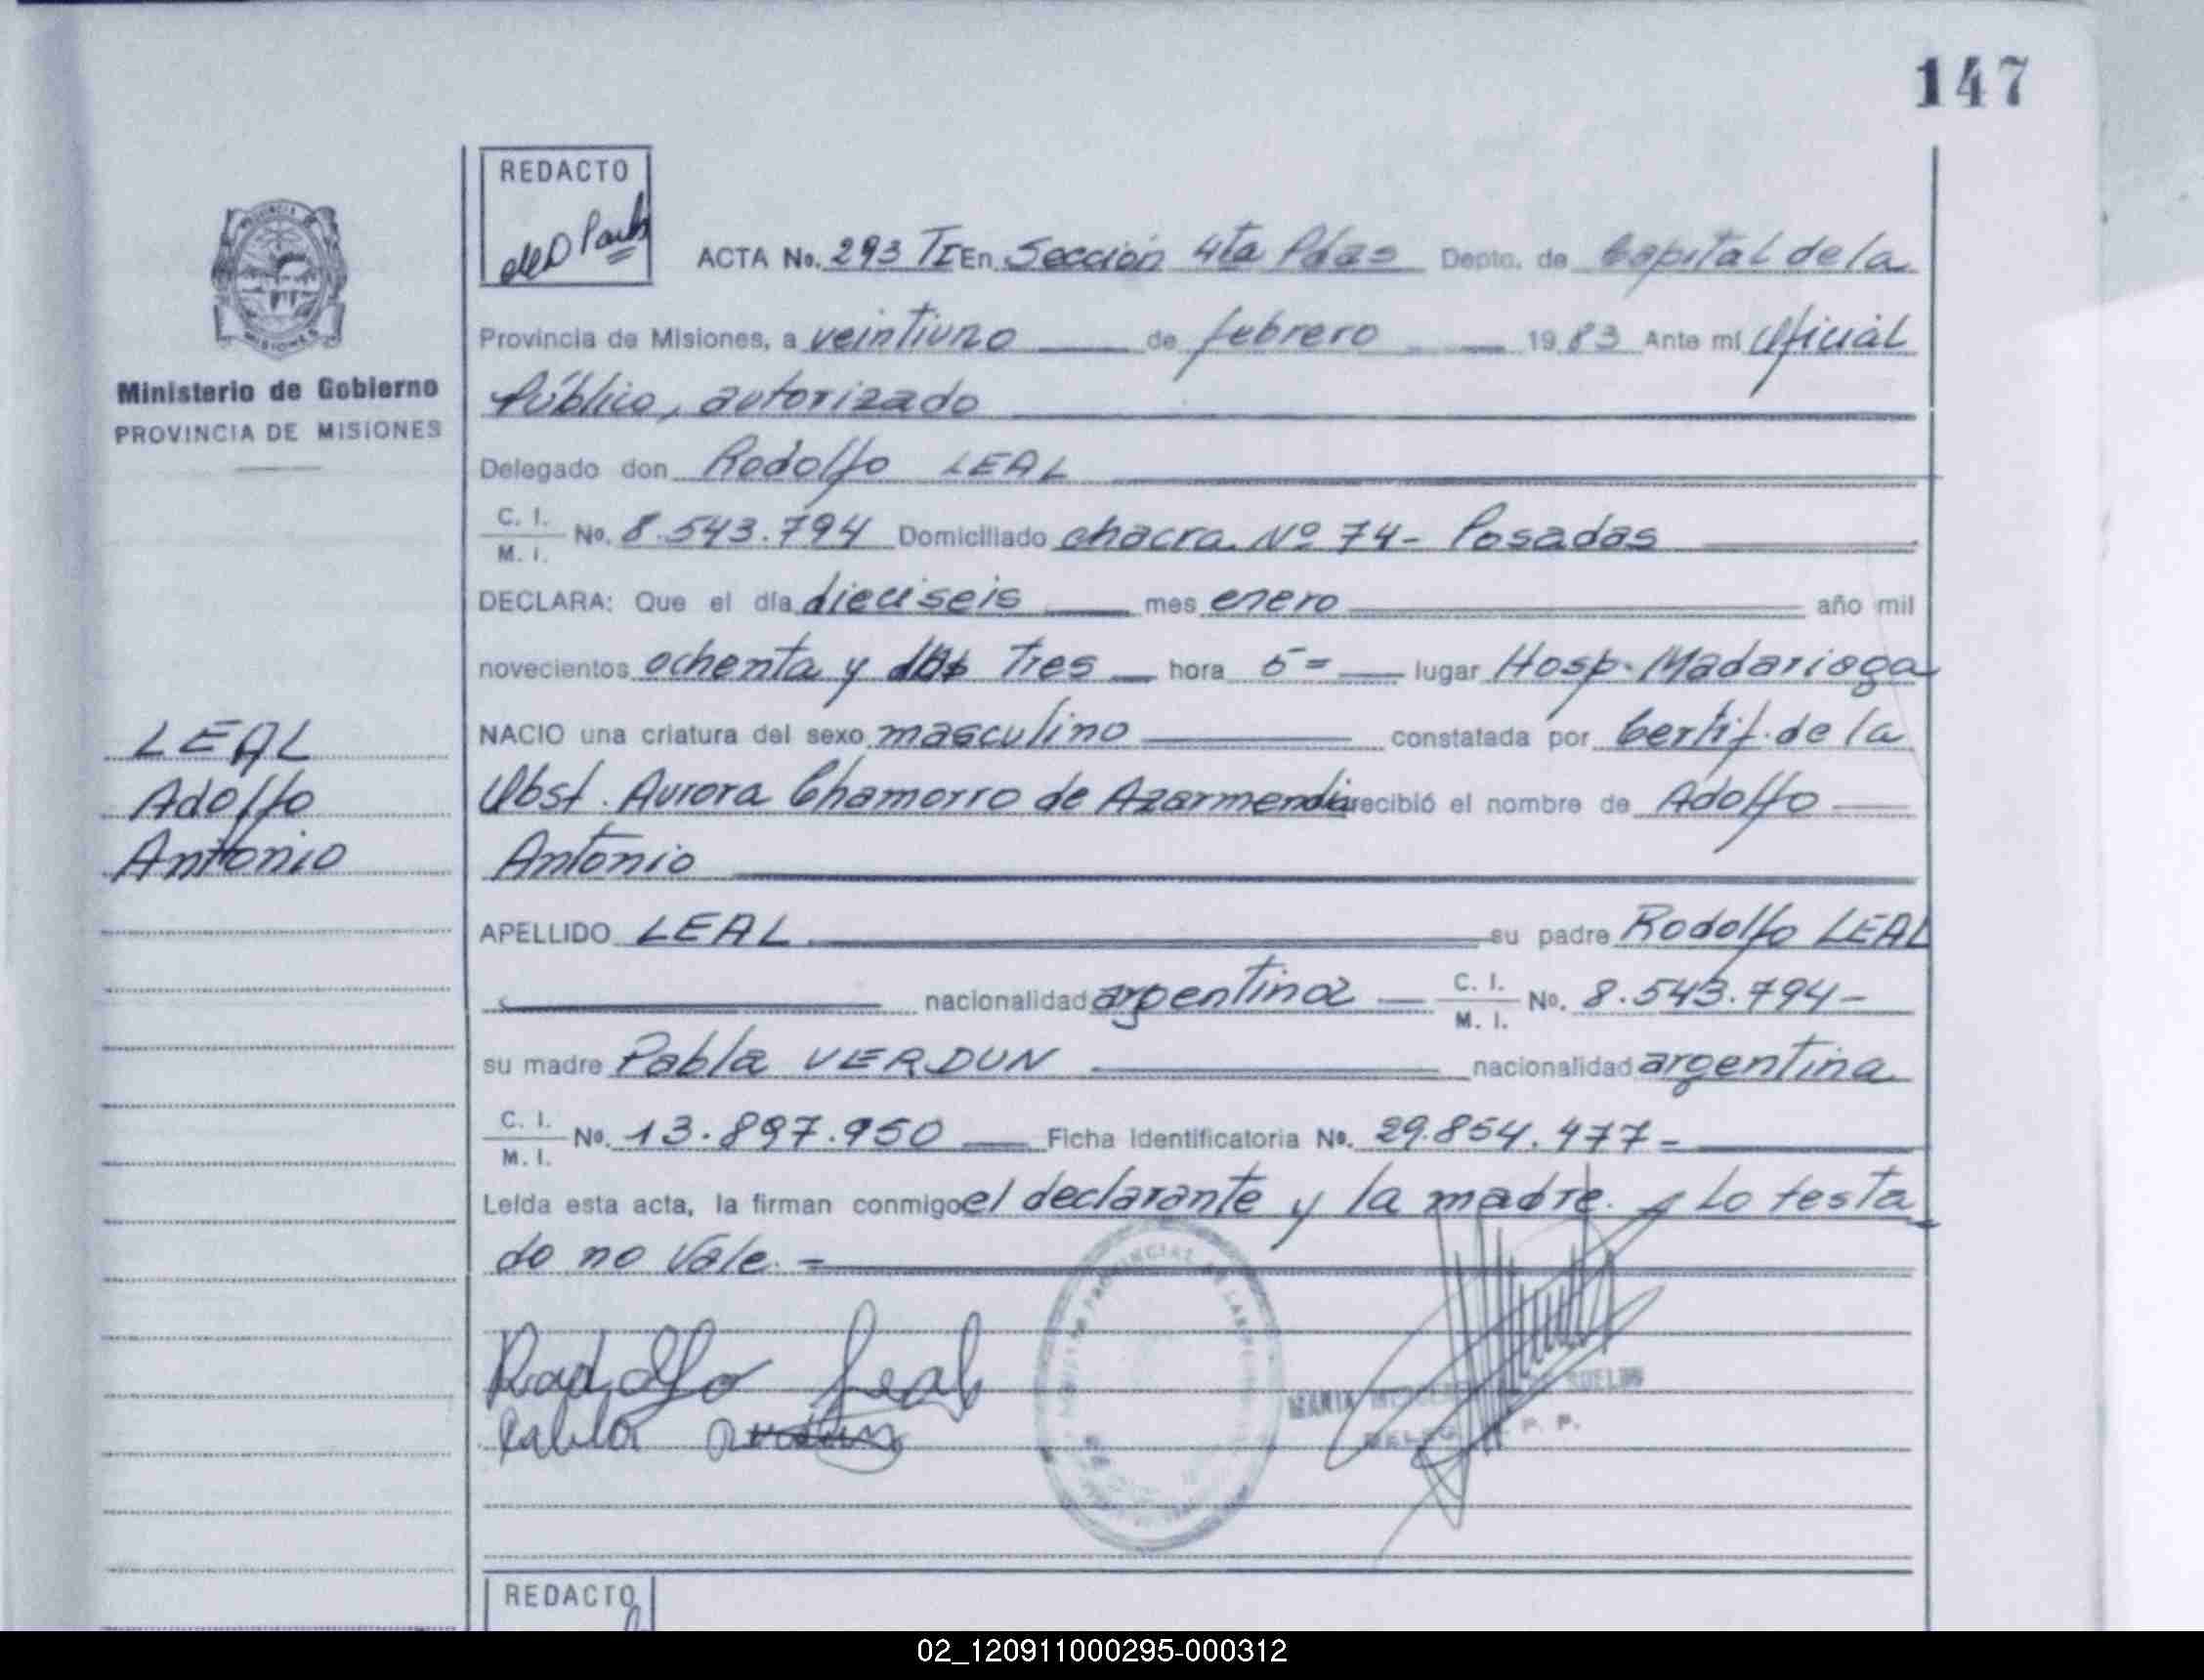 147
REDACTO
ACTA No. 293 TI En Sección 4ta Pdas Depto. de Capital de la
Provincia de Misiones, a veintiuno de febrero 1983 Ante mí Oficial
Público, autorizado
Delegado don Rodolfo LEAL
C. I. / M. I. No. 8.543.794 Domiciliado chacra Nº 74- Posadas
DECLARA: Que el día dieciseis mes enero año mil
novecientos ochenta y dos Tres hora 5= lugar Hosp. Madariaga
NACIO una criatura del sexo masculino constatada por Certif. de la
Obst. Aurora Chamorro de Azarmendia recibió el nombre de Adolfo
Antonio
APELLIDO LEAL su padre Rodolfo LEAL
nacionalidad argentina C. I. / M. I. No. 8.543.794-
su madre Pabla VERDUN nacionalidad argentina
C. I. / M. I. No. 13.897.950 Ficha Identificatoria No. 29.854.477-
Leída esta acta, la firman conmigo el declarante y la madre. Lo testa
do no vale.-
Rodolfo Leal
Pabla
MARIA
P. P.
REDACTO
PROVINCIA DE MISIONES
Ministerio de Gobierno
PROVINCIA DE MISIONES
LEAL
Adolfo
Antonio
02_120911000295-000312